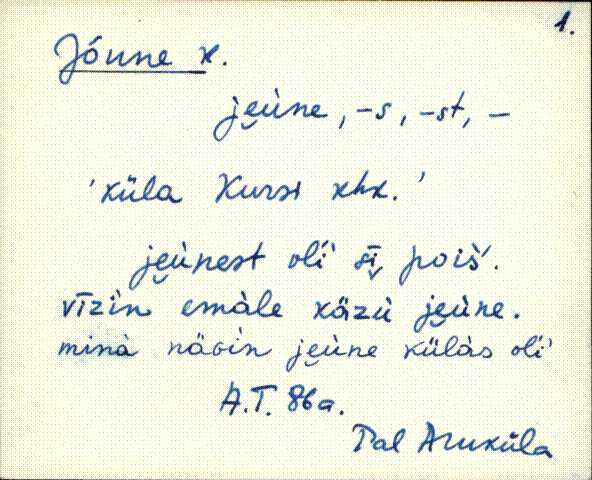 1.
Jóune k.
je̮ùne, -s, -st, -
'küla Kursi khk.'
je̮ùnest olí sī̬ poiś.
vīzìn emàle käzù je̮ùne.
minà näoìn je̮ùne külàs olí
A.T. 86a.
Pal Aruküla